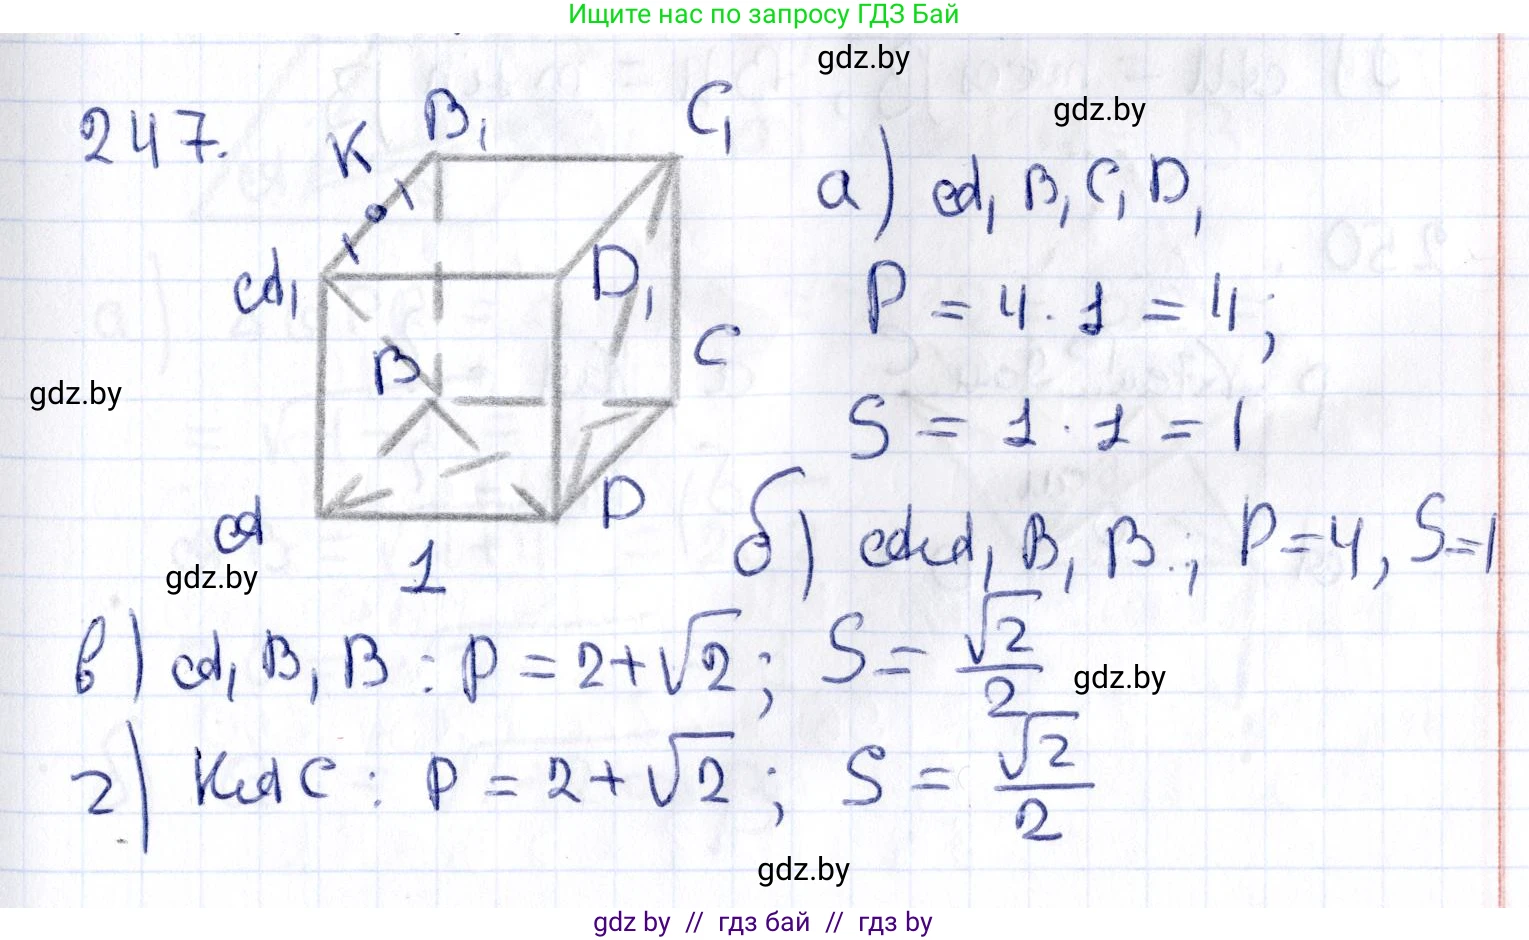 Ищите нас по запросу ГДЗ Бай
gdz.by
gdz.by
247.
K B₁ C₁
A₁ D₁
B C
A D
1
gdz.by
gdz.by
а) A₁B₁C₁D₁
P = 4 · 1 = 4;
S = 1 · 1 = 1
б) AA₁B₁B.; P=4, S=1
в) A₁B₁B : P = 2+√2; S = √2/2
gdz.by
г) KAC : P = 2+√2; S = √2/2
gdz.by
gdz by // гдз бай // гдз by